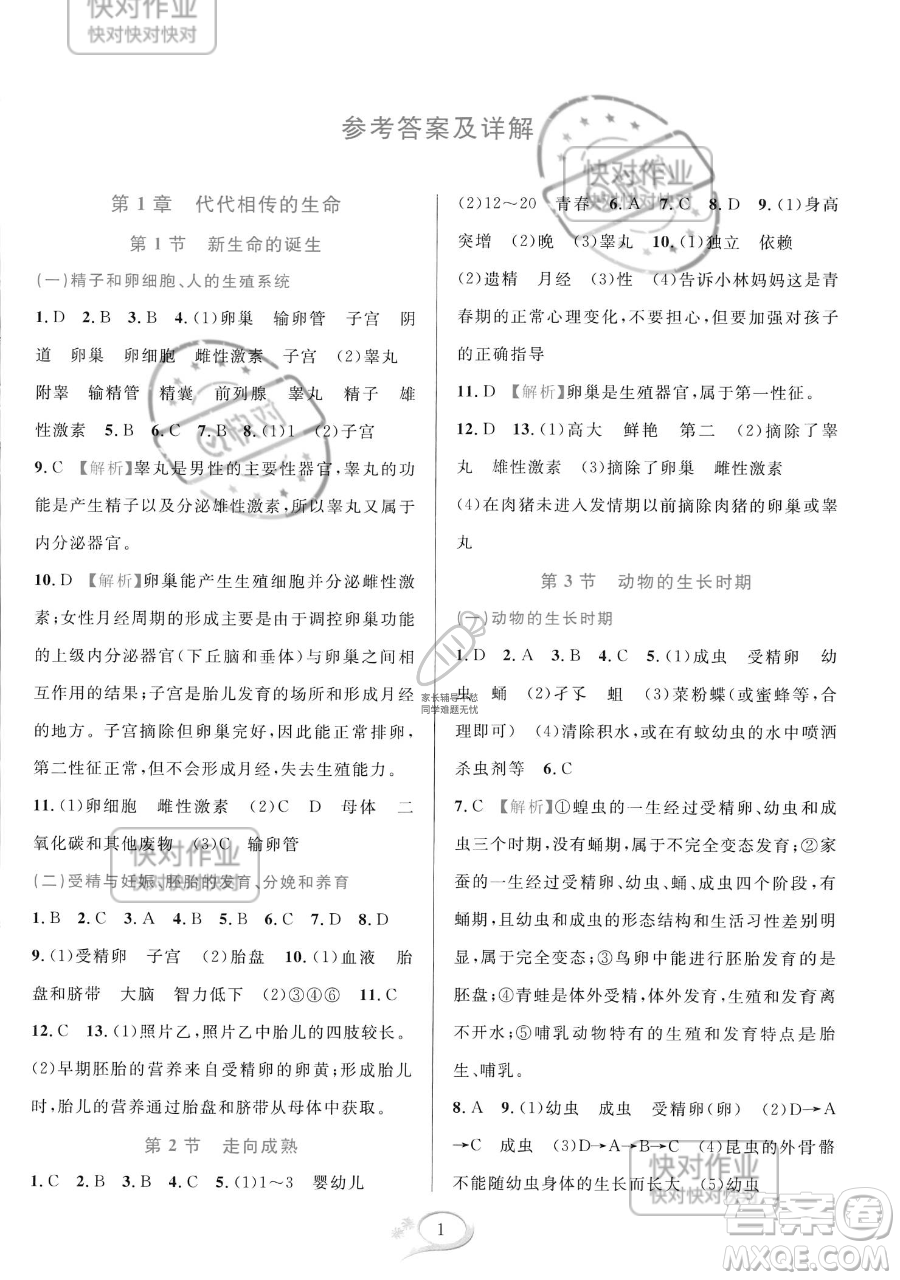 快对作业
快对快对快对
参考答案及详解
第1章 代代相传的生命
第1节 新生命的诞生
(一)精子和卵细胞、人的生殖系统
1.D 2.B 3.B 4.(1)卵巢 输卵管 子宫 阴
道 卵巢 卵细胞 雌性激素 子宫 (2)睾丸
附睾 输精管 精囊 前列腺 睾丸 精子 雄
性激素 5.B 6.C 7.B 8.(1)1 (2)子宫
9.C 【解析】睾丸是男性的主要性器官,睾丸的功
能是产生精子以及分泌雄性激素,所以睾丸又属于
内分泌器官。
10.D 【解析】卵巢能产生生殖细胞并分泌雌性激
素;女性月经周期的形成主要由于调控卵巢功能
的上级内分泌器官(下丘脑和垂体)与卵巢激素相互
作用的结果;子宫是胎儿发育的场所和形成月经
的地方。子宫摘除但卵巢完好,因此能正常排卵,
第二性征正常,但不能形成月经,失去生殖能力。
11.(1)卵细胞 雌性激素 (2)C D 母体 二
氧化碳和其他废物 (3)C 输卵管
(二)受精与妊娠、胚胎的发育、分娩和养育
1.B 2.C 3.A 4.B 5.B 6.D 7.D 8.D
9.(1)受精卵 子宫 (2)胎盘 10.(1)血液 胎
盘和脐带 大脑 智力低下 (2)③④⑥ 11.C
12.C 13.(1)照片乙,照片乙中胎儿的四肢较长。
(2)早期胚胎的营养来自受精卵的卵黄;形成胎儿
时,胎儿的营养通过胎盘和脐带从母体中获取。
第2节 走向成熟
1.C 2.B 3.A 4.C 5.(1)1~3 婴幼儿
(2)12~20 青春 6.A 7.C 8.D 9.(1)身高
突增 (2)晚 (3)睾丸 10.(1)独立 依赖
(2)遗精 月经 (3)性 (4)告诉小林妈妈这是青
春期的正常心理变化,不要担心,但要加强对孩子
的正确指导
11.D 【解析】卵巢是生殖器官,属于第一性征。
12.D 13.(1)高大 鲜艳 第二 (2)摘除了睾
丸 雄性激素 (3)摘除了卵巢 雌性激素
(4)在肉猪未进入发情期以前摘除肉猪的卵巢或睾
丸
第3节 动物的生长时期
(一)动物的生长时期
1.D 2.A 3.C 4.C 5.(1)成虫 受精卵 幼
虫 蛹 (2)孑孓 蛆 (3)菜粉蝶(或蜜蜂等,合
理即可) (4)清除积水,或在有幼虫的水中喷洒
杀虫剂等 6.C
7.C 【解析】①蝗虫的一生经过受精卵、幼虫和成
虫三个时期,没有蛹期,属于不完全变态发育;②家
蚕的一生经过受精卵、幼虫、蛹、成虫四个阶段,有
蛹期,且幼虫和成虫的形态结构和生活习性差别明
显,属于完全变态;③鸟卵中能进行胚胎发育的是
胚盘;④青蛙是体外受精,体外发育,生殖和发育离
不开水;⑤哺乳动物特有的生殖和发育特点是胎
生、哺乳。
8.A 9.(1)幼虫 成虫 受精卵(卵) (2)D→A
→C 成虫 (3)D→A→B→C (4)昆虫的外骨骼
不能随幼虫身体的生长而长大 (5)幼虫
家长辅导不愁
同学难题无忧
快对作业
快对作业
快对快对快对
快对作业
快对快对快对
1
答案圈
MXQE.COM